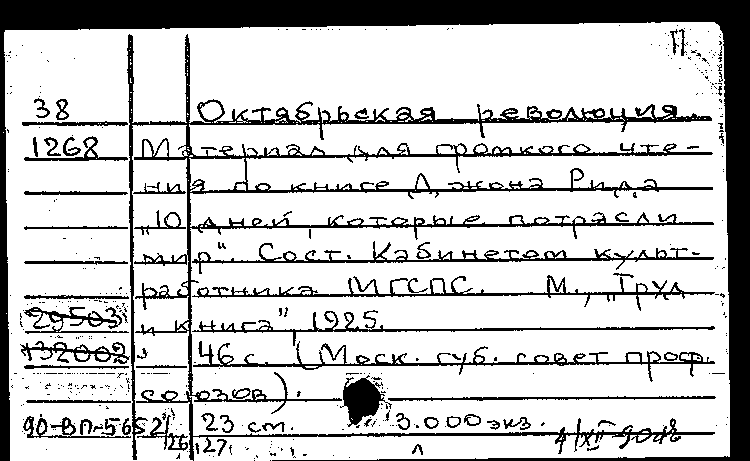 П
38 Октябрьская революция.
1268 Материал для громкого чте-
ния по книге Джона Рида
„10 дней, которые потрясли
мир". Сост. Кабинетом культ-
работника МГСПС. М., „Труд
29503 и книга", 1925.
132002 46 с. (Моск. губ. совет проф.
союзов).
90-ВП-5652/ 23 см. 3.000 экз.
26,27